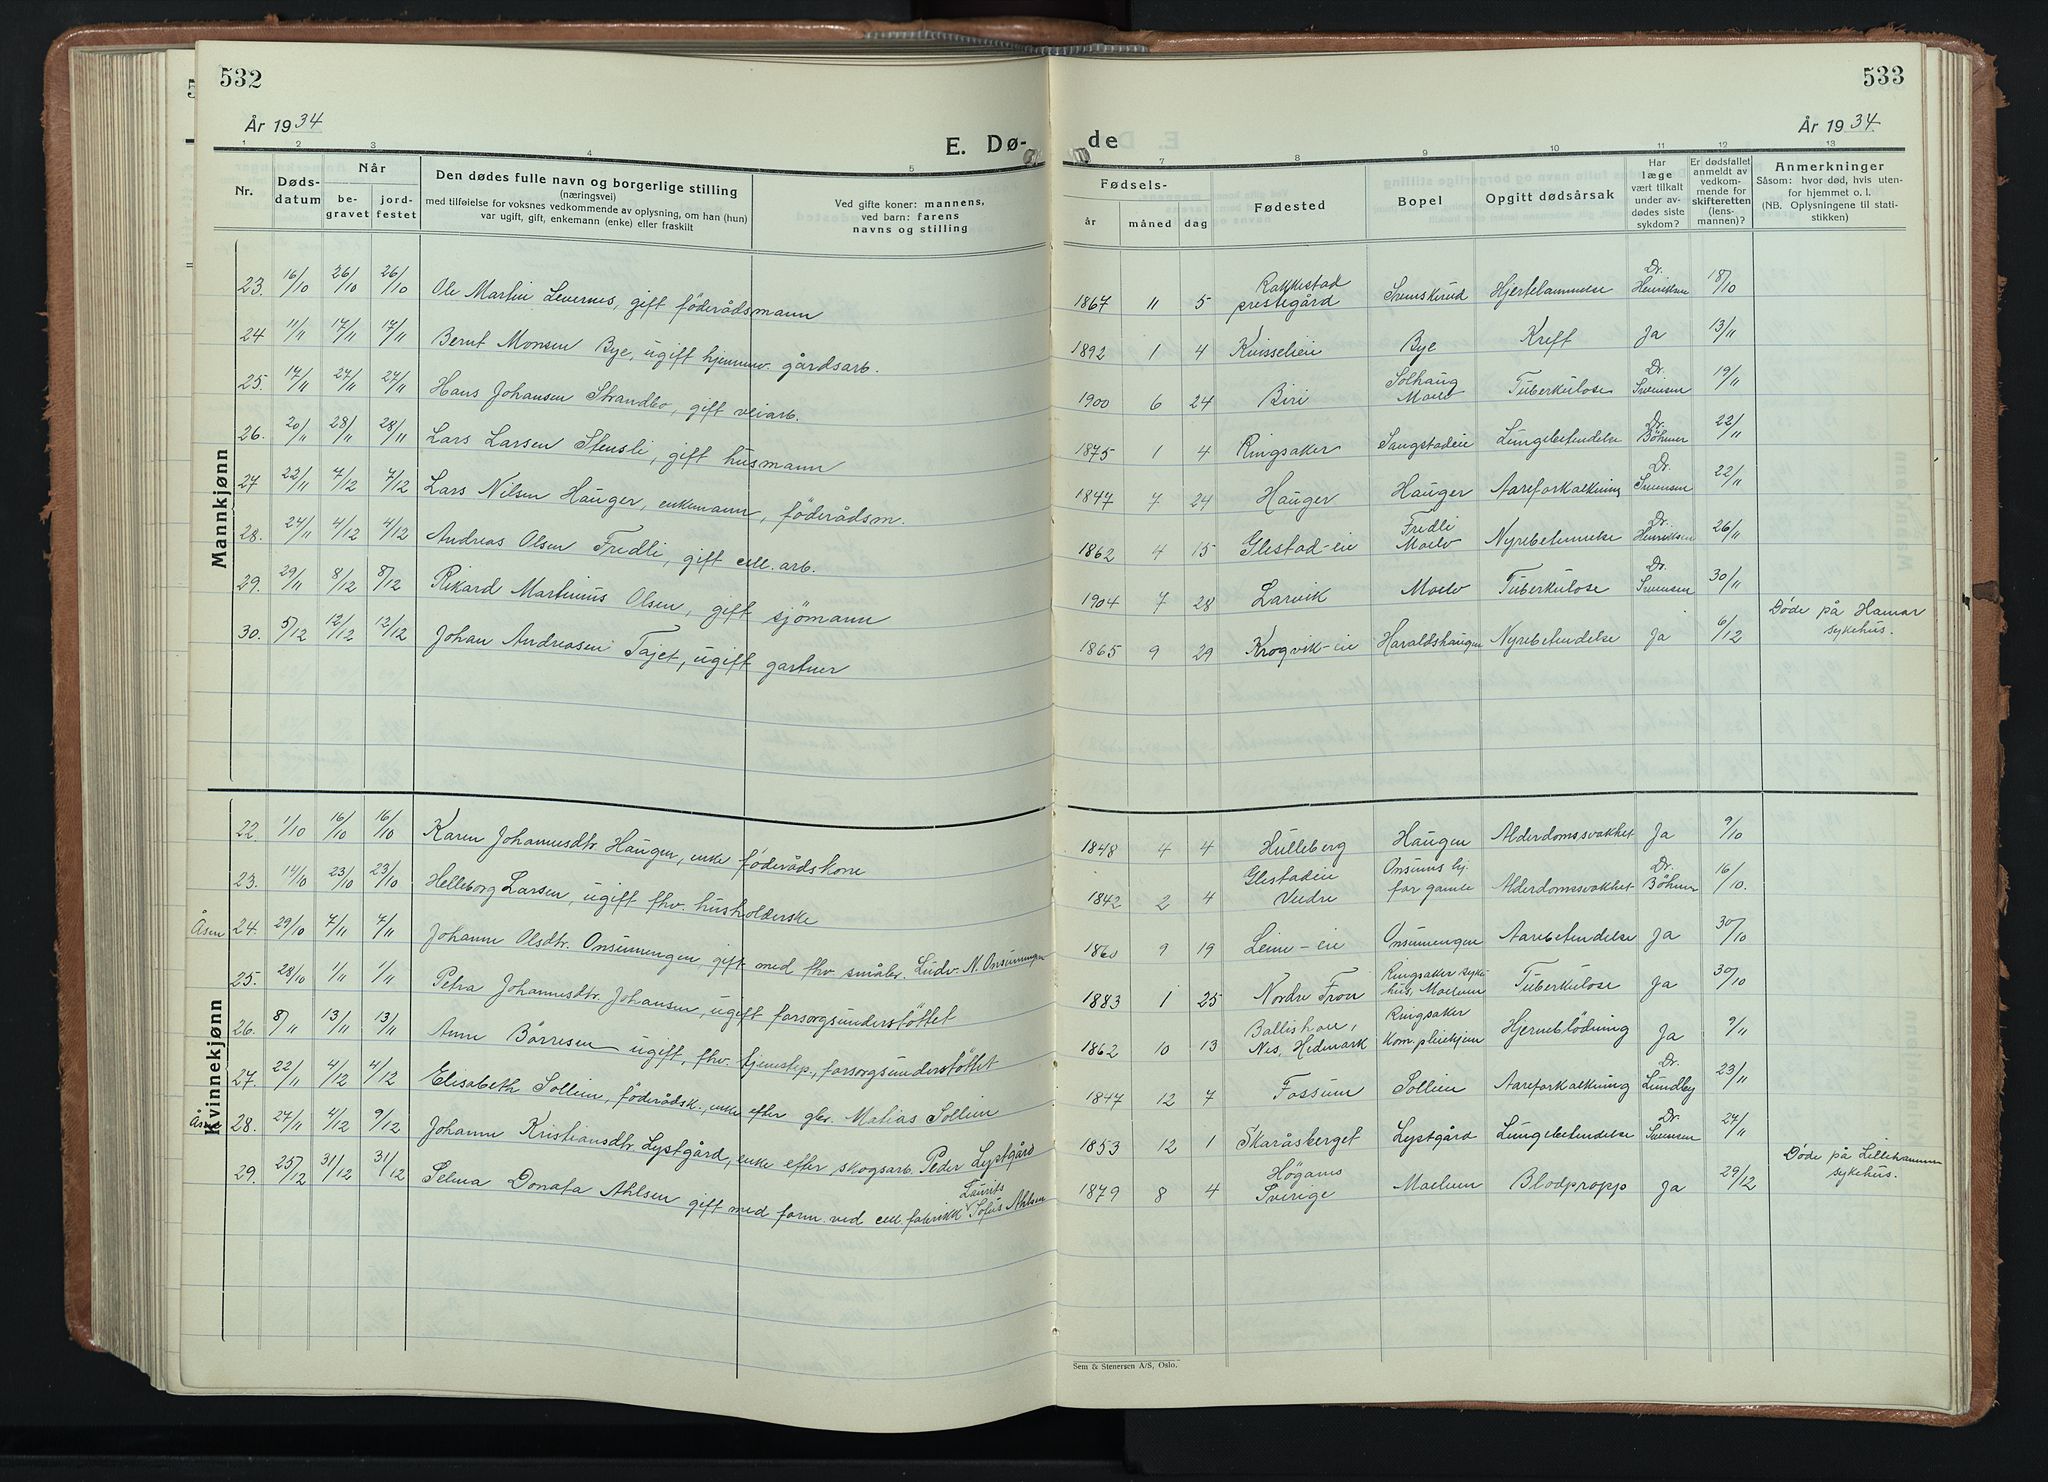 532
533
År 1934
År 1934
E. Dø-
de
1 2 3 4 5 7 8 9 10 11 12 13
Nr.
Døds-
datum
Når
be-
gravet
jord-
festet
Den dødes fulle navn og borgerlige stilling
(næringsvei)
med tilføielse for voksnes vedkommende av oplysning, om han (hun)
var ugift, gift, enkemann (enke) eller fraskilt
Ved gifte koner: mannens,
ved barn: farens
navns og stilling
Fødsels-
år måned dag
Fødested
Bopel
Opgitt dødsårsak
Har
læge
vært tilkalt
under av-
dødes siste
sykdom?
Er dødsfallet
anmeldt av
vedkom-
mende for
skifteretten
(lens-
mannen)?
Anmerkninger
Såsom: hvor død, hvis uten-
for hjemmet o. l.
(NB. Oplysningene til stati-
stikken)
Mannkjønn
23. 16/10 26/10 26/10 Ole Martin Levernes, gift föderådsmann 1867 11 5 Rakkestad prestegård Svenskerud Hjertelammelse Dr. Henriksen 18/10
24 11/11 17/11 17/11 Bernt Monsen Bye, ugift hjemmev. gårdsarb. 1892 1 4 Kvisseleie Bye Kreft Ja 13/11
25. 17/11 27/11 27/11 Hans Johansen Strandbo, gift veiarb. 1900 6 24 Biri Solhaug Moelv Tuberkulose Dr. Svensen 19/11
26. 20/11 28/11 28/11 Lars Larsen Stensli, gift husmann 1875 1 4 Ringsaker Saugstadeie Lungebetendelse Dr. Böhmer 22/11
27 22/11 7/12 7/12 Lars Nilsen Hauger, enkemann, föderådsm. 1847 7 24 Hauger Hauger Aareforkalkning Dr. Svensen 22/11
28. 24/11 4/12 4/12 Andreas Olsen Fredli, gift cell. arb. 1862 4 15 Glestad-eie Fredli Moelv Nyrebetennelse Dr. Henriksen 26/11
29. 29/11 8/12 8/12 Rikard Martinius Olsen, gift sjömann 1904 7 28 Larvik Moelv Tuberkulose Dr. Svensen 30/11
30. 5/12 12/12 12/12 Johan Andreasen Tajet, ugift gartner 1865 9 29 Krogvik-eie Haraldshaugen Nyrebetendelse Ja 6/12 Döde på Hamar sykehus.
Kvinnekjønn
22. 1/10 16/10 16/10 Karen Johannesdtr. Haugen, enke föderådskone 1848 4 4 Hulleberg Haugen Alderdomssvakhet Ja 9/10
23. 14/10 23/10 23/10 Helleborg Larsen, ugift fhv. husholderske 1842 2 4 Glestadeie Veldre Onsums hj. for gamle Alderdomssvakhet Dr. Böhmer 16/10.
Åsen 24. 29/10 7/11 7/11 Johanne Olsdtr. Onsumengen, gift med fhv. småbr. Ludv. N. Onsumengen 1860 9 19 Leine-eie Onsumengen Aarebetendelse Ja 30/10
25. 28/10 1/11 1/11 Petra Johannesdtr. Johansen, ugift forsorgsunderstöttet 1883 1 25 Nordre Fron Ringsaker sykehus, Moelven Tuberkulose Ja 30/10
26. 8/11 13/11 13/11 Anne Börresen ugift, fhv. tjenestep., forsorgsunderstöttet 1862 10 13 Ballishol, Nes, Hedmark Ringsaker kom. pleiehjem Hjerneblödning Ja 9/11
27. 22/11 4/12 4/12 Elisabeth Sollien, föderådsk., enke efter gbr. Matias Sollien 1847 12 7 Fossum Sollien Aareforkalkning Dr. Lundby 23/11
Åsen 28. 27/11 4/12 9/12 Johanne Kristiansdtr. Lystgård, enke efter skogsarb. Peder Lystgård 1853 12 1 Skaråsberget Lystgård Lungebetendelse Dr. Svensen 27/11
29. 25/12 31/12 31/12 Selma Donata Ahlsen gift med form. ved cell. fabrikk Laurits Sofus Ahlsen 1879 8 4 Höganæs Sverige Moelven Blodpropp Ja 29/12 Döde på Lillehammer sykehus.
Sem & Stenersen A/S, Oslo.